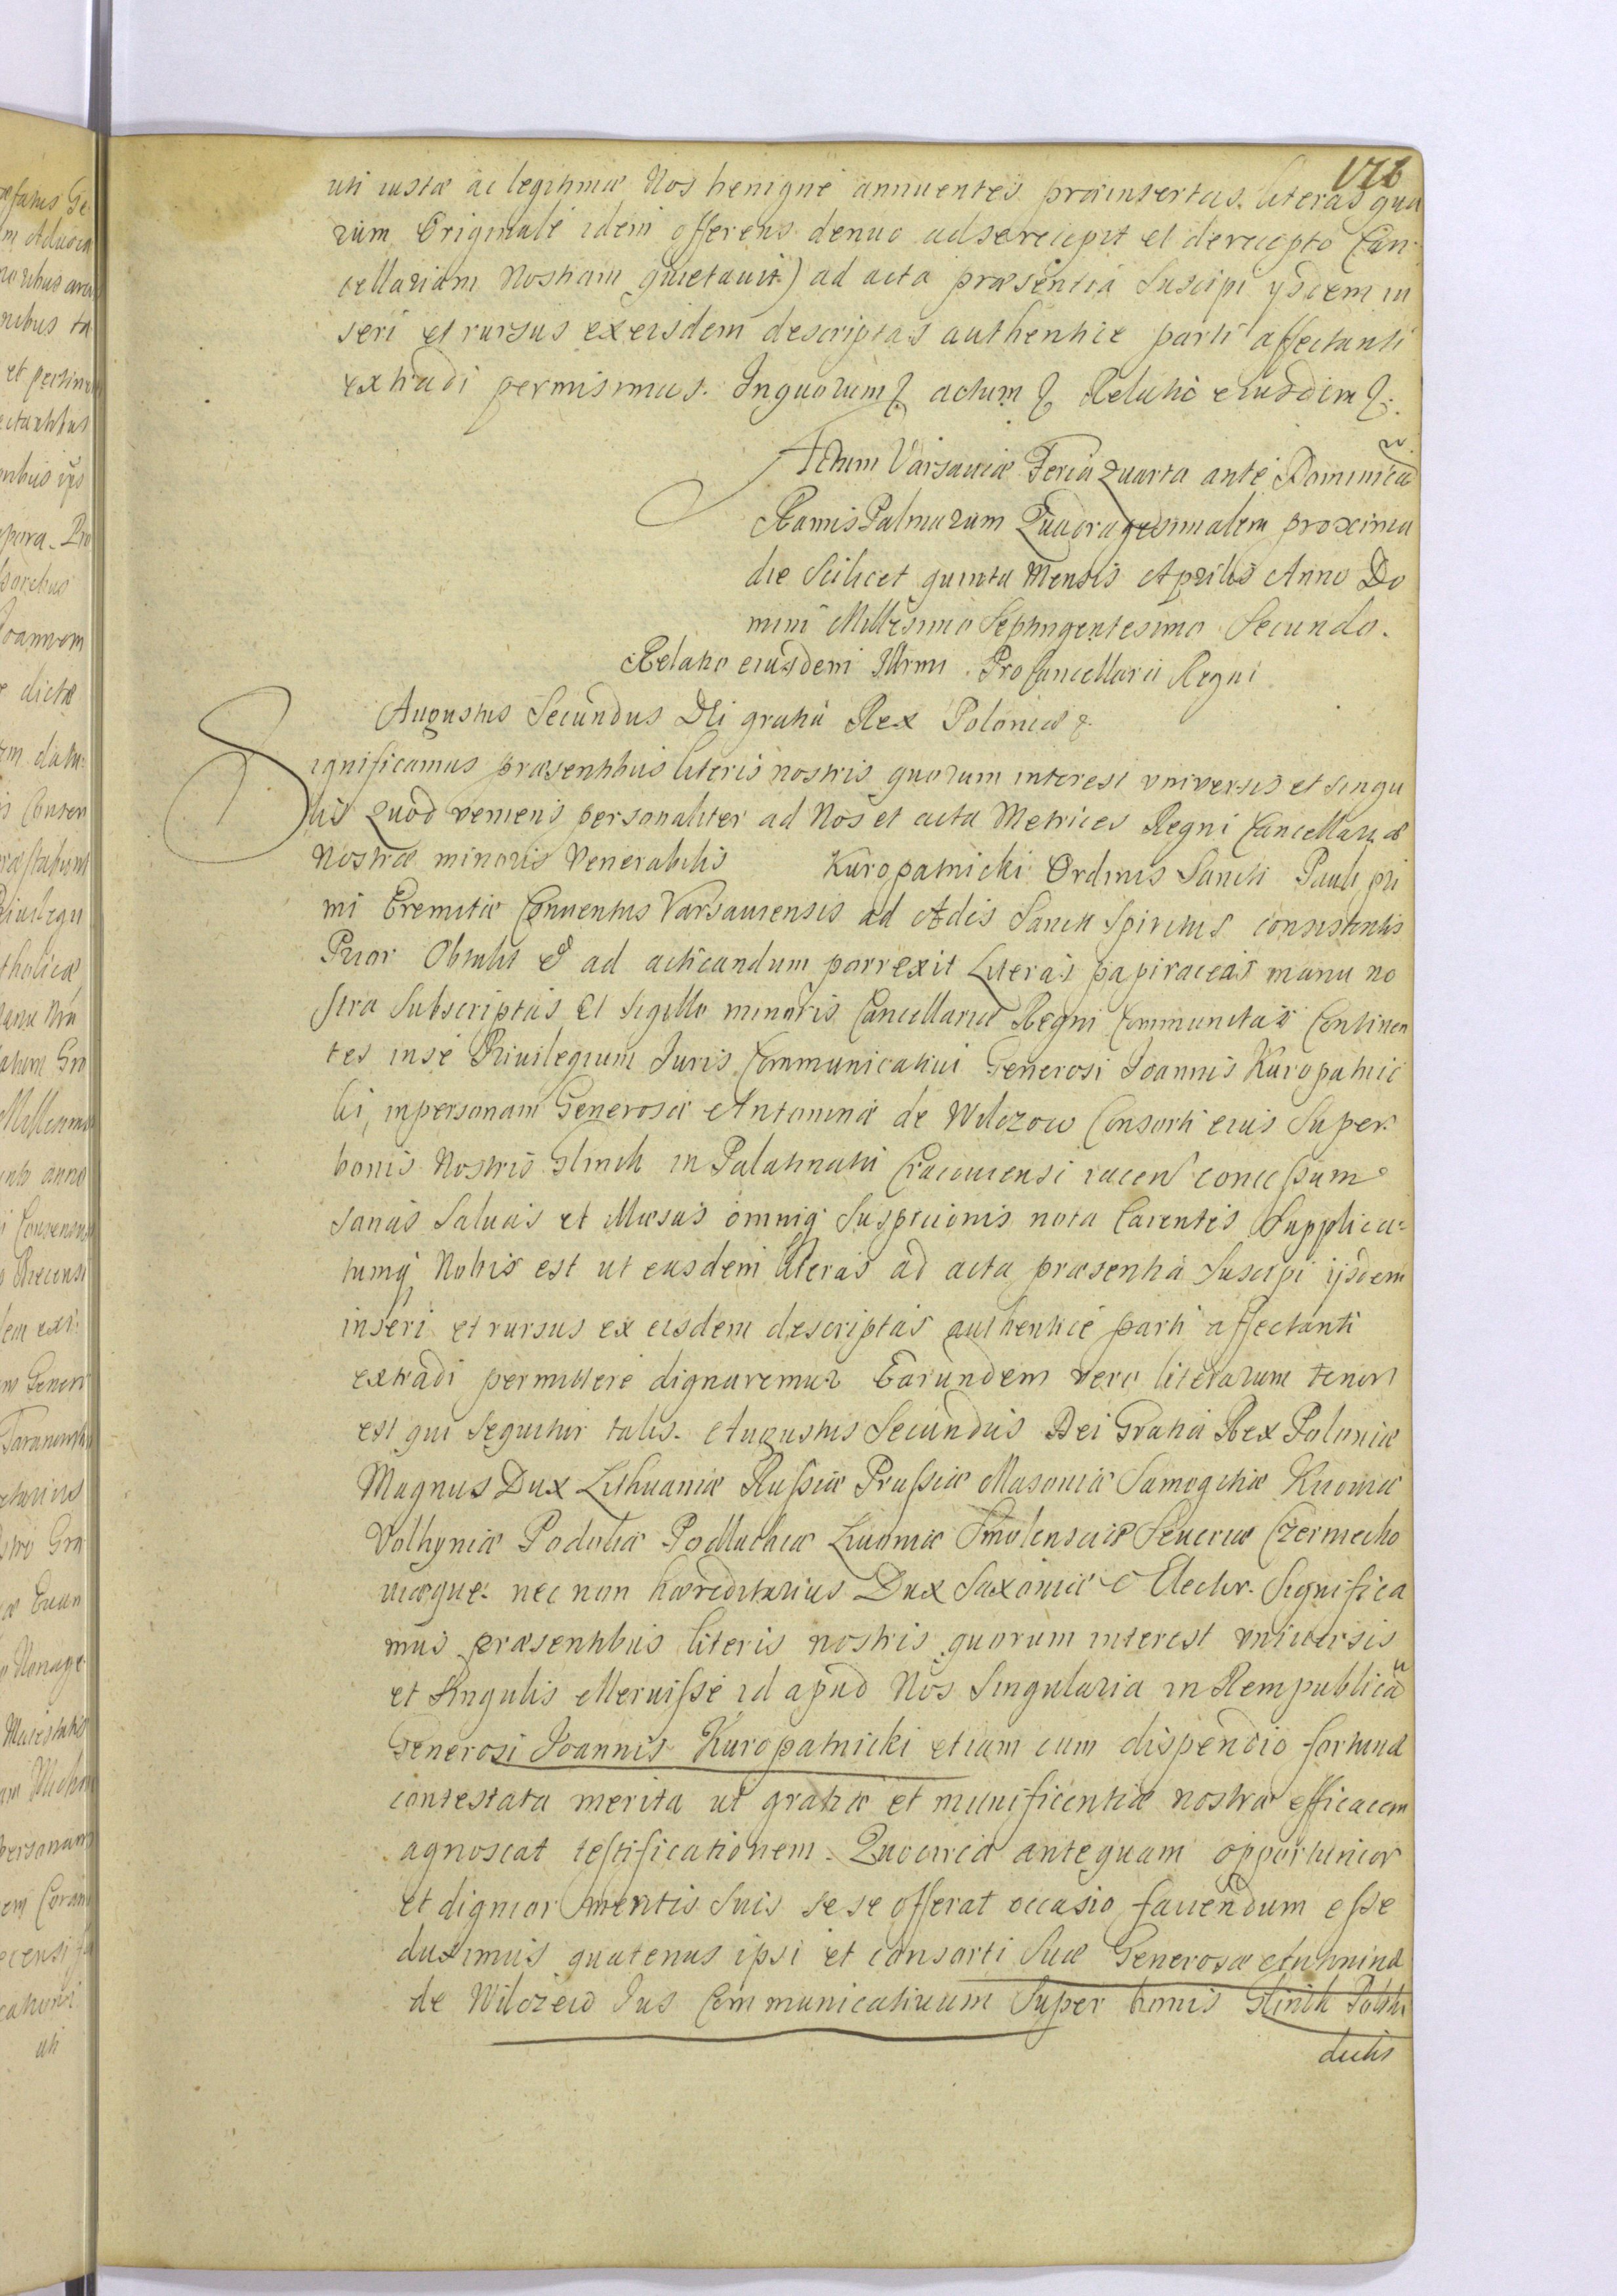 176
uti iustæ ac legitimæ Nos benigne annuentes præinsertas literas qua
rum Originale idem offerens denuo ad se recepit et de recepto Can
cellariam Nostram quietauit) ad acta præsentia Suscipi ysdem in
seri et rursus ex eisdem descriptas authentice parti affectanti
extradi permisimus. In quorum & actum & Relatio eiusdem &.
Actum Varsauiæ Feria Quarta ante Dominicã
Ramis Palmarum Quadragesimalem proxima
die Scilicet quinta Mensis Aprilis Anno Do
mini Millesimo Septingentesimo Secundo.
Relatio eiusdem Illrmi Pro Cancellarii Regni
Augustus Secundus Dei gratia Rex Poloniæ &
Significamus præsentibus literis nostris quorum interest vniversis et singu
lis Quod veniens personaliter ad Nos et acta Metrices Regni Cancellariæ
Nostræ minoris Venerabilis Kuropatnicki Ordinis Sancti Pauli pri
mi Eremitæ Conuentus Varsauiensis ad Ædis Sancti Spiritus consistentis
Prior Obtulit & ad acticandum porrexit Literas papiraceas manu no
stra Subscriptas et sigillo minoris Cancellariæ Regni Communitas Continen
tes in se Priuilegium Iuris Communicatiui Generosi Joannis Kuropatnic
ki, in personam Generosæ Antoninæ de Wilczow Consorti eius Super
bonis Nostris Glinik in Palatinatu Cracouiensi iacen concessum
Sanas Saluas et illæsas omniq Suspicionis nota Carentes Supplica-
tumq Nobis est ut easdem literas ad acta præsentia Suscipi ijsdem
inseri et rursus ex eisdem descriptas authentice parti affectanti
extradi permittere dignaremur Earundem vero literarum tenor
est qui sequitur talis. Augustus Secundus Dei Gratia Rex Poloniæ
Magnus Dux Lithuaniæ Russiæ Prussiæ Masouiæ Samogitiæ Kiiouiæ
Volhyniæ Podoliæ Podlachiæ Liuoniæ Smolensciæ Seueriæ Czerniecho
uiæque nec non hæreditarius Dux Saxoniæ & Elector. Significa
mus præsentibus literis nostris quorum interest vniuersis
et Singulis Meruisse id apud Nos Singularia in Rempublicã
Generosi Joannis Kuropatnicki etiam cum dispendio fortunæ
contestata merita ut gratiæ et munificentiæ nostræ efficacem
agnoscat testificationem. Quocirca antequam opportunior
et dignior meritis Suis se se offerat occasio fauendum esse
duximus quatenus ipsi et consorti Suæ Generosæ Antoninæ
de Wilczew Ius Communicatiuum Super bonis Glinik Polski
dictis